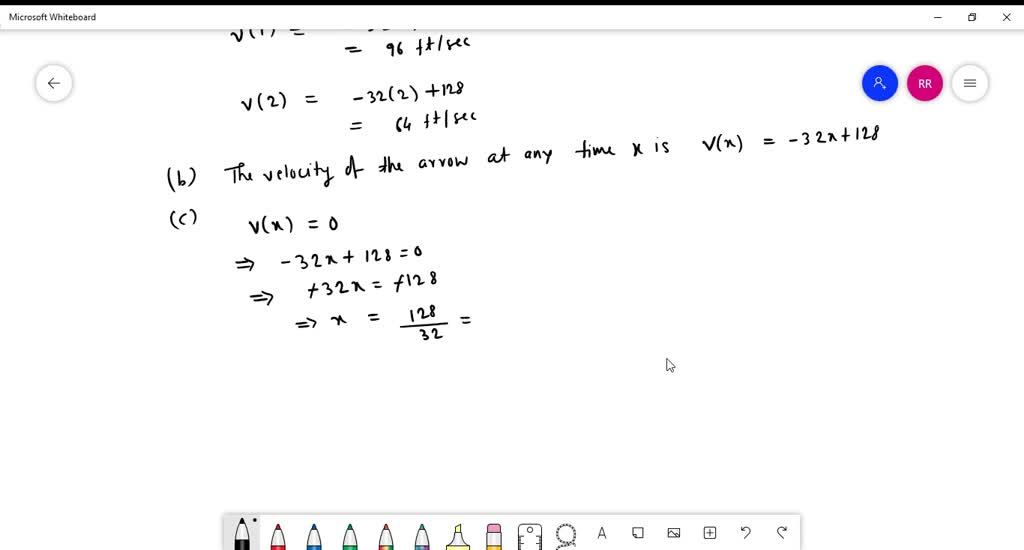 Microsoft Whiteboard
v(1) =
= 96 ft/sec
RR
v(2) = -32(2) +128
= 64 ft/sec
(b) The velocity of the arrow at any time x is v(x) = -32x+128
(c) v(x) = 0
⇒ -32x + 128 = 0
⇒ +32x = +128
⇒ x = 128/32 =
A